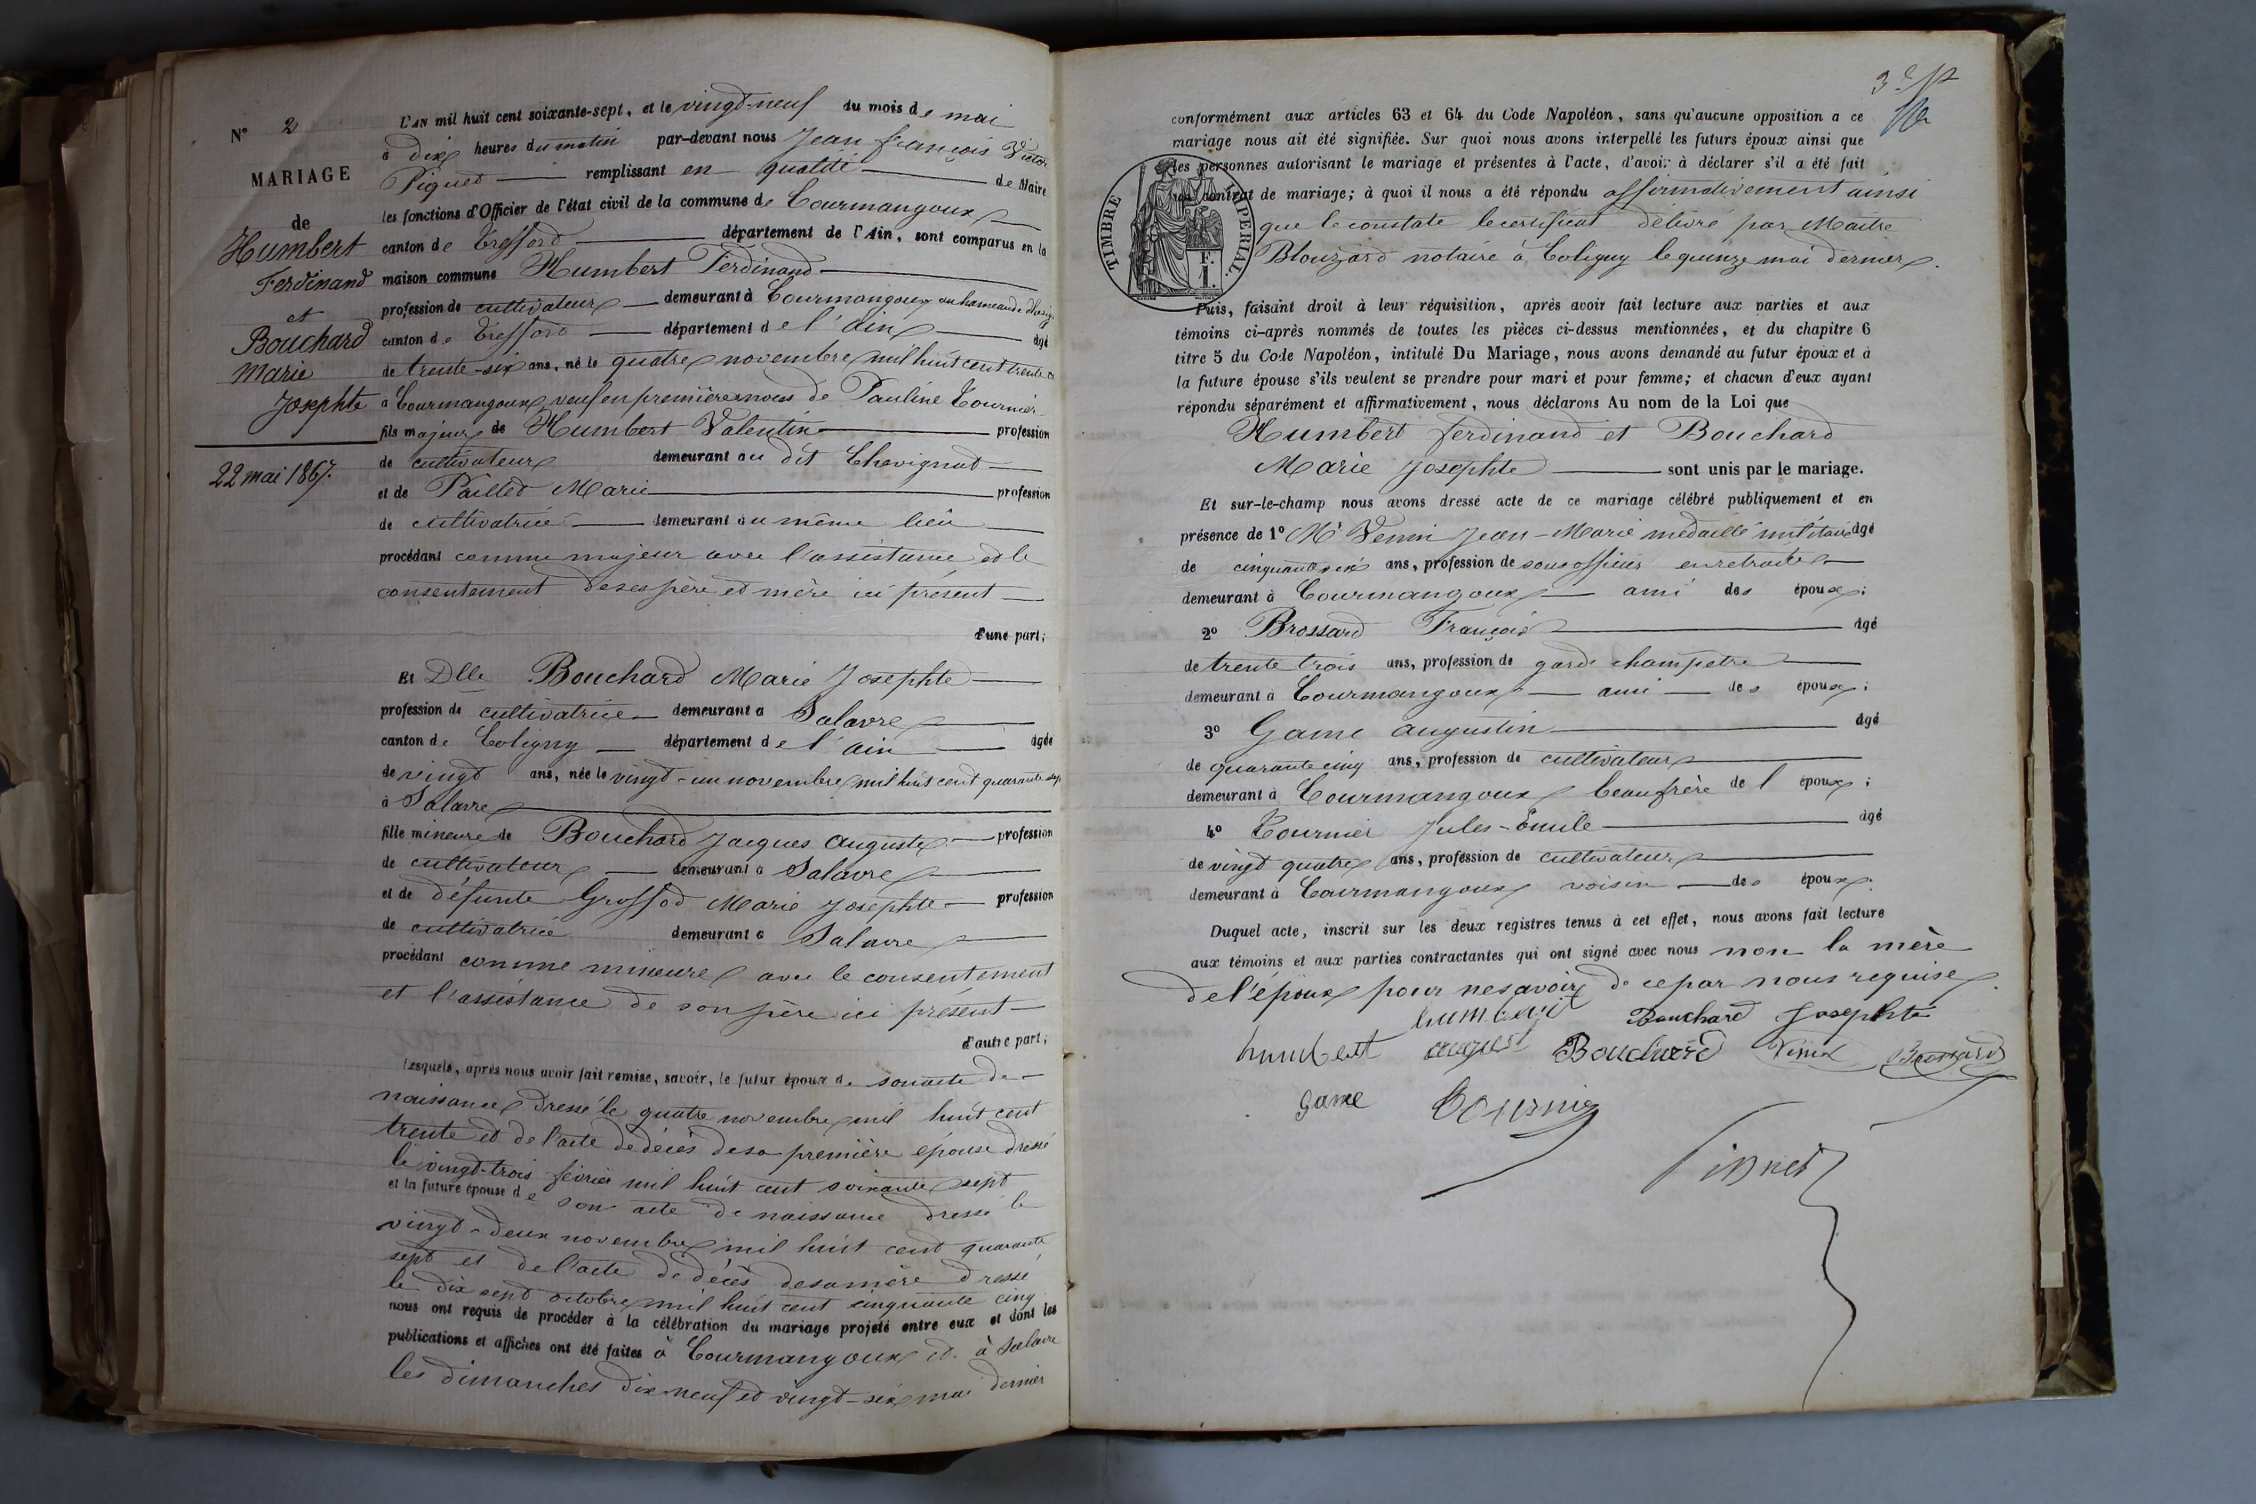 N° 2
MARIAGE
de
Humbert
Ferdinand
et
Bouchard
Marie
Josephte
22 mai 1867.
L'AN mil huit cent soixante-sept, et le vingt-neuf du mois de mai
à dix heures du matin par-devant nous Jean françois Victor
Piquet remplissant en qualité de Maire
les fonctions d'Officier de l'état civil de la commune de Courmangoux
canton de Treffort département de l'Ain, sont comparus en la
maison commune Humbert Ferdinand
profession de cultivateur demeurant à Courmangoux au hameau de
canton de Treffort département de l'ain âgé
de trente-six ans, né le quatre novembre mil huit cent trente
à Courmangoux veuf en premières noces de Pauline Tournier
fils majeur de Humbert Valentin profession
de cultivateur demeurant au dit Chevignat
et de Paillet Marie profession
de cultivatrice demeurant au même lieu
procédant comme majeur avec l'assistance et le
consentement de ses père et mère ici présent
d'une part;
Et Dlle Bouchard Marie Josephte
profession de cultivatrice demeurant à Salavre
canton de Coligny département de l'ain âgée
de vingt ans, née le vingt-un novembre mil huit cent quarante sept
à Salavre
fille mineure de Bouchard Jacques Auguste profession
de cultivateur demeurant à Salavre
et de défunte Groffod Marie Josephte profession
de cultivatrice demeurant à Salavre
procédant comme mineure avec le consentement
et l'assistance de son père ici présent
d'autre part;
Lesquels, après nous avoir fait remise, savoir, le futur époux de son acte de
naissance dressé le quatre novembre mil huit cent
trente et de l'acte de décès de sa première épouse dressé
le vingt-trois février mil huit cent soixante sept
et la future épouse de son acte de naissance dressé le
vingt-deux novembre mil huit cent quarante
sept et de l'acte de décès de sa mère dressé
le dix sept octobre mil huit cent cinquante cinq
nous ont requis de procéder à la célébration du mariage projeté entre eux et dont les
publications et affiches ont été faites à Courmangoux et à Salavre
les dimanches dix-neuf et vingt-six mai dernier
3e
conformément aux articles 63 et 64 du Code Napoléon, sans qu'aucune opposition a ce
mariage nous ait été signifiée. Sur quoi nous avons interpellé les futurs époux ainsi que
les personnes autorisant le mariage et présentes à l'acte, d'avoir à déclarer s'il a été fait
un contrat de mariage; à quoi il nous a été répondu affirmativement ainsi
que le constate le certificat délivré par Maître
Blouzard notaire à Coligny le quinze mai dernier.
TIMBRE IMPÉRIAL.
F.
1.
Puis, faisant droit à leur réquisition, après avoir fait lecture aux parties et aux
témoins ci-après nommés de toutes les pièces ci-dessus mentionnées, et du chapitre 6
titre 5 du Code Napoléon, intitulé Du Mariage, nous avons demandé au futur époux et à
la future épouse s'ils veulent se prendre pour mari et pour femme; et chacun d'eux ayant
répondu séparément et affirmativement, nous déclarons Au nom de la Loi que
Humbert ferdinand et Bouchard
Marie Josephte sont unis par le mariage.
Et sur-le-champ nous avons dressé acte de ce mariage célébré publiquement et en
présence de 1° Mr Venin Jean-Marie médaillé militaire âgé
de cinquante six ans, profession de sous officier en retraite
demeurant à Courmangoux ami des époux;
2° Brossard François âgé
de trente trois ans, profession de garde champetre
demeurant à Courmangoux ami des époux;
3° Game augustin âgé
de quarante cinq ans, profession de cultivateur
demeurant à Courmangoux beaufrère de l époux;
4° Tournier Jules-Emile âgé
de vingt quatre ans, profession de cultivateur
demeurant à Courmangoux voisin des époux.
Duquel acte, inscrit sur les deux registres tenus à cet effet, nous avons fait lecture
aux témoins et aux parties contractantes qui ont signé avec nous non la mère
de l'époux pour ne savoir de ce par nous requise.
humbert Bouchard Josephte
humbert Bouchard Venin Brossard
game Tournier
Piquet